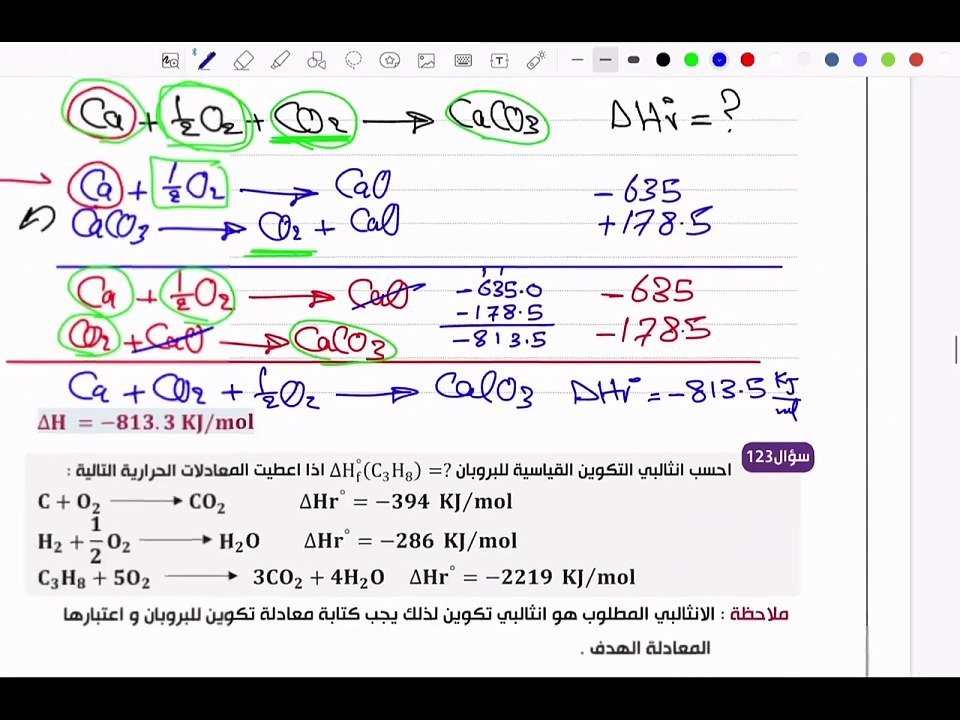 Ca + 1/2 O₂ + CO₂ → CaCO₃ ΔHr° = ?
Ca + 1/2 O₂ → CaO - 635
CaCO₃ → CO₂ + CaO + 178.5
Ca + 1/2 O₂ → CaO - 635.0 - 635
- 178.5
CO₂ + CaO → CaCO₃ - 813.5 - 178.5
Ca + CO₂ + 1/2 O₂ → CaCO₃ ΔHr° = - 813.5 KJ/mol
ΔH = −813.3 KJ/mol
سؤال123
احسب انثالبي التكوين القياسية للبروبان ΔH°f(C₃H₈) =? اذا اعطيت المعادلات الحرارية التالية :
C + O₂ → CO₂ ΔHr° = −394 KJ/mol
H₂ + 1/2 O₂ → H₂O ΔHr° = −286 KJ/mol
C₃H₈ + 5O₂ → 3CO₂ + 4H₂O ΔHr° = −2219 KJ/mol
ملاحظة : الانثالبي المطلوب هو انثالبي تكوين لذلك يجب كتابة معادلة تكوين للبروبان و اعتبارها
المعادلة الهدف .